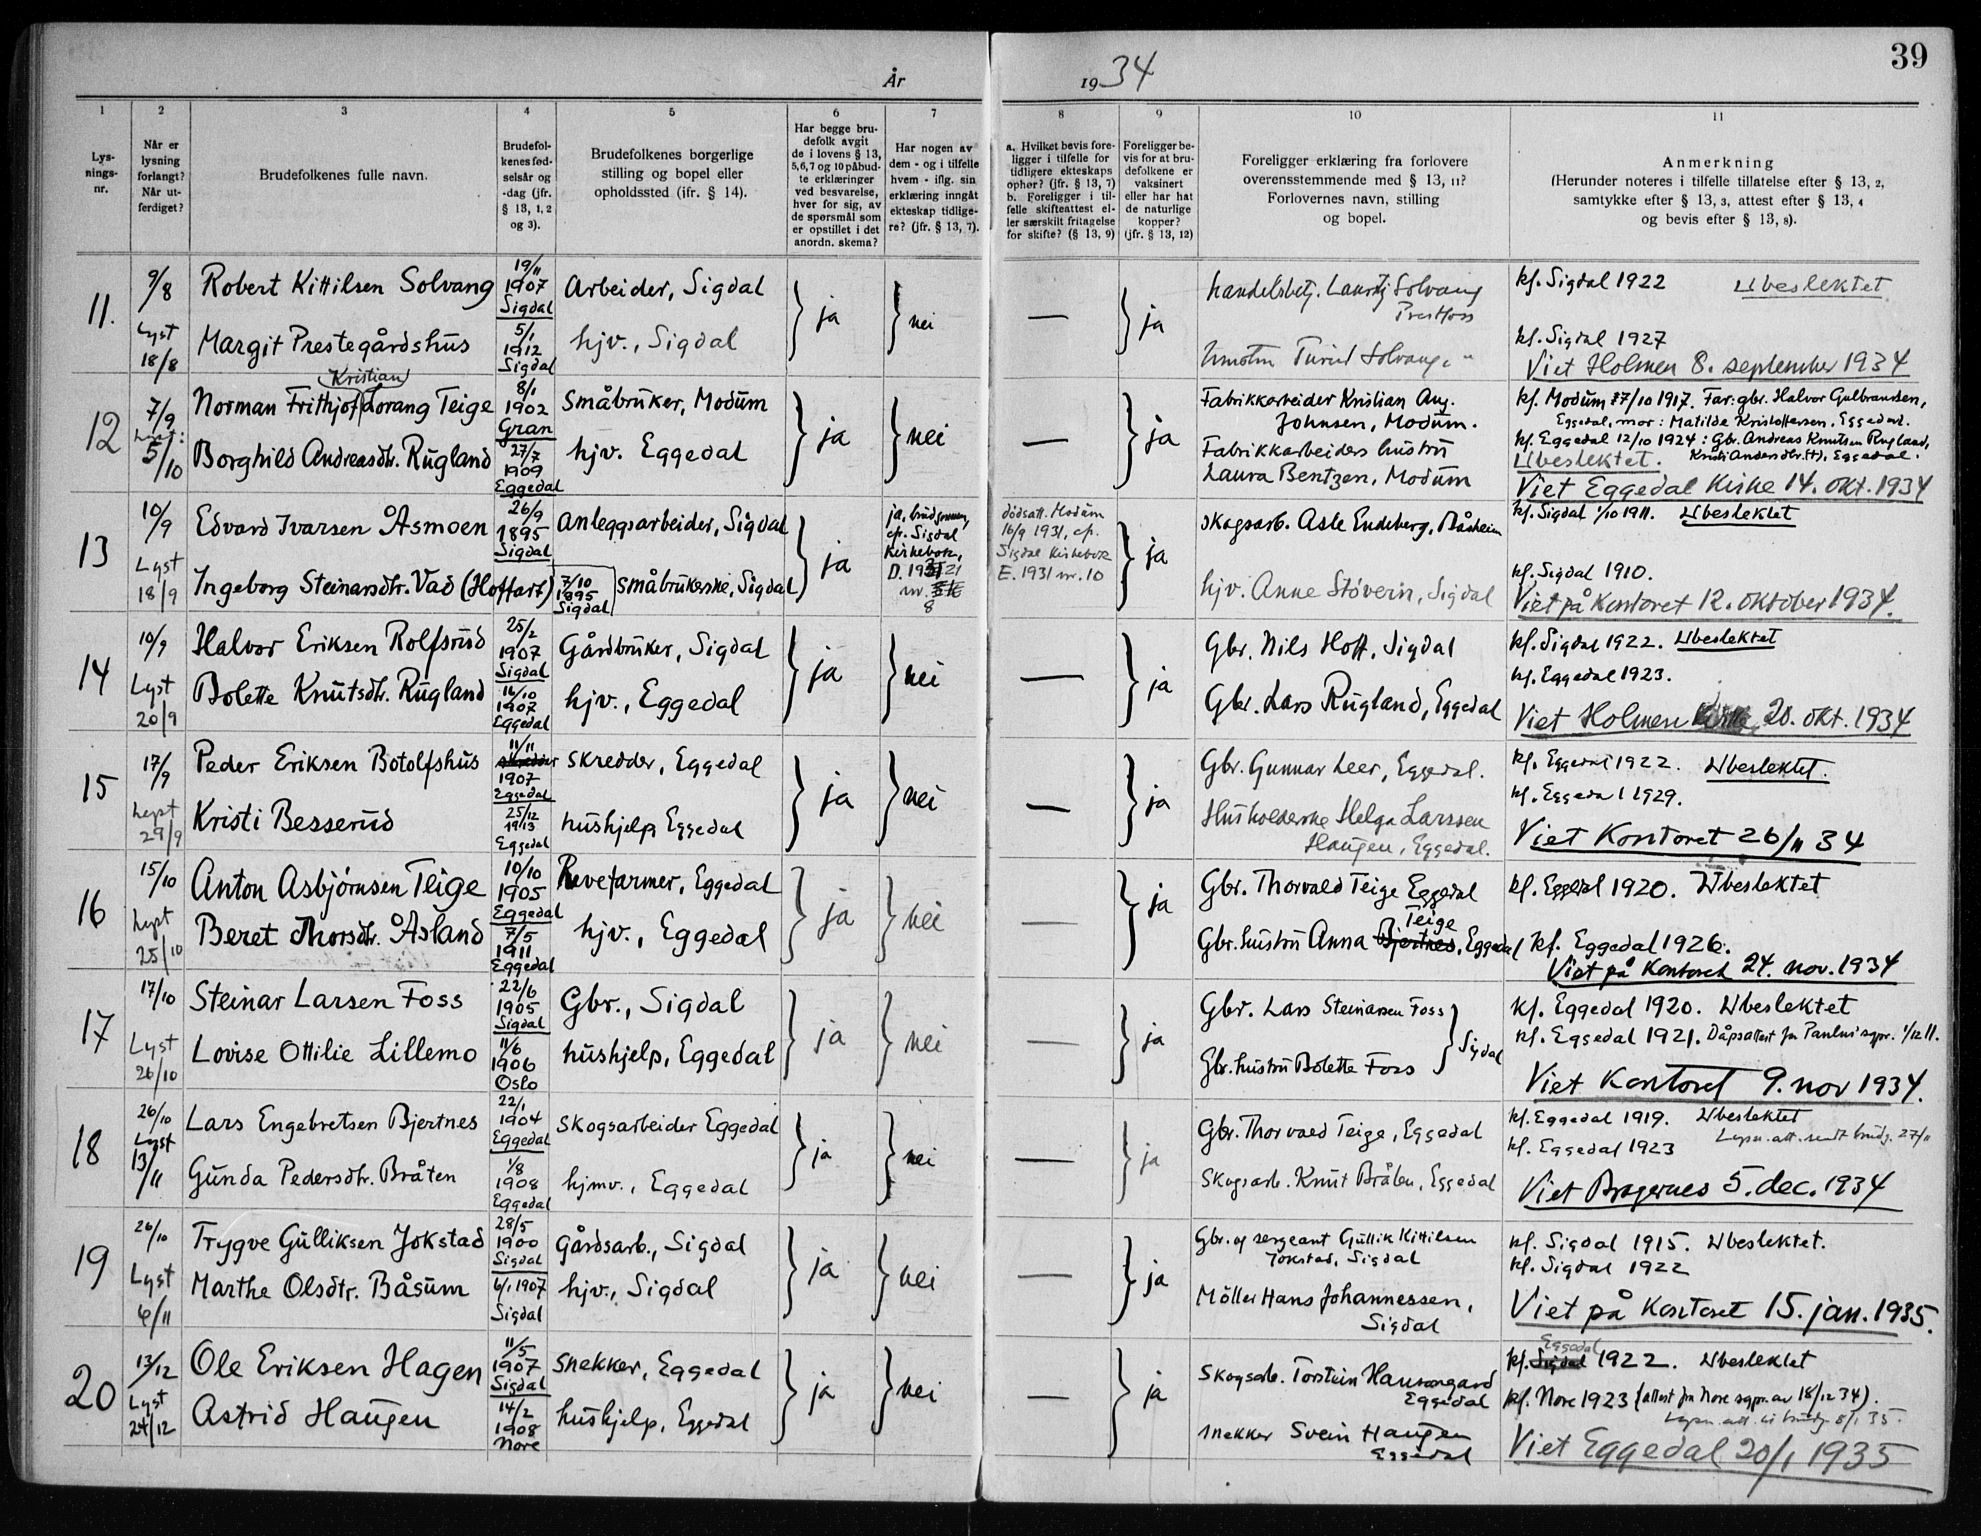 39
År 1934
1 2 3 4 5 6 7 8 9 10 11
Lys-
nings-
nr.
Når er
lysning
forlangt?
Når ut-
ferdiget?
Brudefolkenes fulle navn.
Brudefol-
kenes fød-
selsår og
-dag (jfr.
§ 13, 1, 2
og 3).
Brudefolkenes borgerlige
stilling og bopel eller
opholdssted (ifr. § 14).
Har begge bru-
defolk avgit
de i lovens § 13,
5,6,7 og 10 påbud-
te erklæringer
ved besvarelse,
hver for sig, av
de spørsmål som
er opstillet i det
anordn. skema?
Har nogen av
dem - og i tilfelle
hvem - iflg. sin
erklæring inngåt
ekteskap tidlige-
re? (jfr. § 13, 7).
a. Hvilket bevis fore-
ligger i tilfelle for
tidligere ekteskaps
ophør? (jfr. § 13, 7)
b. Foreligger i til-
felle skifteattest el-
ler særskilt fritagelse
for skifte? (§ 13, 9)
Foreligger be-
vis for at bru-
defolkene er
vaksinert
eller har hat
de naturlige
kopper?
(jfr. § 13, 12)
Foreligger erklæring fra forlovere
overensstemmende med § 13, 11?
Forlovernes navn, stilling
og bopel.
Anmerkning
(Herunder noteres i tilfelle tillatelse efter § 13, 2,
samtykke efter § 13, 3, attest efter § 13, 4
og bevis efter § 13, 8).
11. 9/8 Robert Kittilsen Solvang 19/11 1907 Sigdal Arbeider, Sigdal ja nei — ja Handelsbetj. Lauritz Solvang Prestfoss kf. Sigdal 1922 Ubeslektet
Lyst 18/8 Margit Prestegårdshus 5/1 1912 Sigdal hjv., Sigdal Turid Solvang, " kf. Sigdal 1927
Viet Holmen 8. september 1934
12 7/9 Norman Frithjof Kristian Lorang Teige 8/1 1902 Gran Småbruker, Modum ja nei — ja Fabrikkarbeider Kristian Aug. Johnsen, Modum. kf. Modum 7/10 1917. Far: gbr. Halvor Gulbrandsen,
Eggedal, mor: Matilde Kristoffersen, Eggedal.
Lyst: 5/10 Borghild Andreasdtr. Rugland 27/7 1909 Eggedal hjv. Eggedal Fabrikkarbeiders hustru Laura Bentzen, Modum kf. Eggedal 12/10 1924: Gbr. Andreas Knutsen Rugland,
Ubeslektet. Kristi Andersdtr. Eggedal.
Viet Eggedal Kirke 14. okt. 1934
13 10/9 Edvard Ivarsen Åsmoen 26/9 1895 Sigdal Anleggsarbeider, Sigdal ja ja, brudgommen, cfr. Sigdal Kirkebok, D. 1921 nr. 8 dödsatt. Modum 16/9 1931, cfr. Sigdal Kirkebok E. 1931 nr. 10 ja Skogsarb. Asle Endeberg, Båsheim kf. Sigdal 1/10 1911. Ubeslektet
Lyst 18/9 Ingeborg Steinarsdtr. Vad (Hoffart) 7/10 1895 Sigdal Småbrukerske, Sigdal hjv. Anne Støvern, Sigdal kf. Sigdal 1910.
Viet på Kontoret 12. oktober 1934.
14 10/9 Halvor Eriksen Rolfsrud 25/2 1907 Sigdal Gårdbruker, Sigdal ja nei — ja Gbr. Nils Hoff, Sigdal kf. Sigdal 1922. Ubeslektet
Lyst 20/9 Bolette Knutsdtr. Rugland 16/10 1907 Eggedal hjv., Eggedal Gbr. Lars Rugland, Eggedal kf. Eggedal 1923.
Viet Holmen Kirke 20. okt. 1934
15 17/9 Peder Eriksen Botolfshus 11/11 1907 Eggedal Skredder, Eggedal ja nei — ja Gbr. Gunnar Leer, Eggedal. kf. Eggedal 1922. Ubeslektet.
Lyst 29/9 Kristi Besserud 25/12 1913 Eggedal hushjelp Eggedal Husholderske Helga Larssen Haugen, Eggedal. kf. Eggedal 1929.
Viet Kontoret 26/11 34
16 15/10 Anton Asbjørnsen Teige 10/10 1905 Eggedal Revefarmer, Eggedal ja nei — ja Gbr. Thorvald Teige Eggedal kf. Eggedal 1920. Ubeslektet
Lyst 25/10 Beret Thorsdtr. Åsland 7/5 1911 Eggedal hjv., Eggedal Gbr. hustru Anna Bjertnes Teige, Eggedal kf. Eggedal 1926.
Viet på Kontoret 24. nov. 1934
17 17/10 Steinar Larsen Foss 22/6 1905 Sigdal Gbr., Sigdal ja nei — ja Gbr. Lars Steinarsen Foss Sigdal kf. Eggedal 1920. Ubeslektet
Lyst 26/10 Lovise Ottilie Lillemo 11/6 1906 Oslo hushjelp, Eggedal Gbr. hustru Bolette Foss kf. Eggedal 1921. Dåpsattest fra Paulus' sgpr. 1/12 11.
Viet Kontoret 9. nov 1934.
18 26/10 Lars Engebretsen Bjertnes 22/1 1904 Eggedal Skogsarbeider Eggedal ja nei — ja Gbr. Thorvald Teige, Eggedal kf. Eggedal 1919. Ubeslektet
Lysn. att. sendt brudg. 27/11
Lyst 13/11 Gunda Pedersdtr. Bråten 1/8 1908 Eggedal hjmv., Eggedal Skogsarb. Knut Bråten, Eggedal kf. Eggedal 1923
Viet Bragernes 5. dec. 1934
19 26/10 Trygve Gulliksen Jokstad 28/5 1900 Sigdal Gårdsarb., Sigdal ja nei — ja Gbr. og sergeant Gullik Kittilsen Jokstad, Sigdal kf. Sigdal 1915. Ubeslektet.
Lyst 6/11 Marthe Olsdtr. Båsum 6/1 1907 Sigdal hjv., Sigdal Möller Hans Johannessen, Sigdal kf. Sigdal 1922
Viet på Kontoret 15. jan. 1935.
20 13/12 Ole Eriksen Hagen 11/5 1907 Sigdal Snekker, Eggedal ja nei — ja Skogsarb. Torstein Hansangard Eggedal kf. Sigdal Eggedal 1922. Ubeslektet
Lyst 24/12 Astrid Haugen 14/2 1908 Nore hushjelp, Eggedal Snekker Svein Haugen Eggedal kf. Nore 1923 (attest fra Nore sgpr. av 18/12 34).
Lysn. att. til brudg. 8/1 35.
Viet Eggedal 20/1 1935